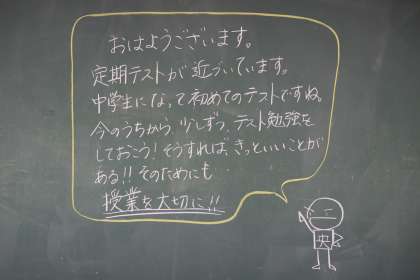 おはようございます。
定期テストが近づいています。
中学生になって初めてのテストですね。
今のうちから、少しずつ、テスト勉強を
しておこう!そうすれば、きっといいことが
ある!!そのためにも
授業を大切に!!
央